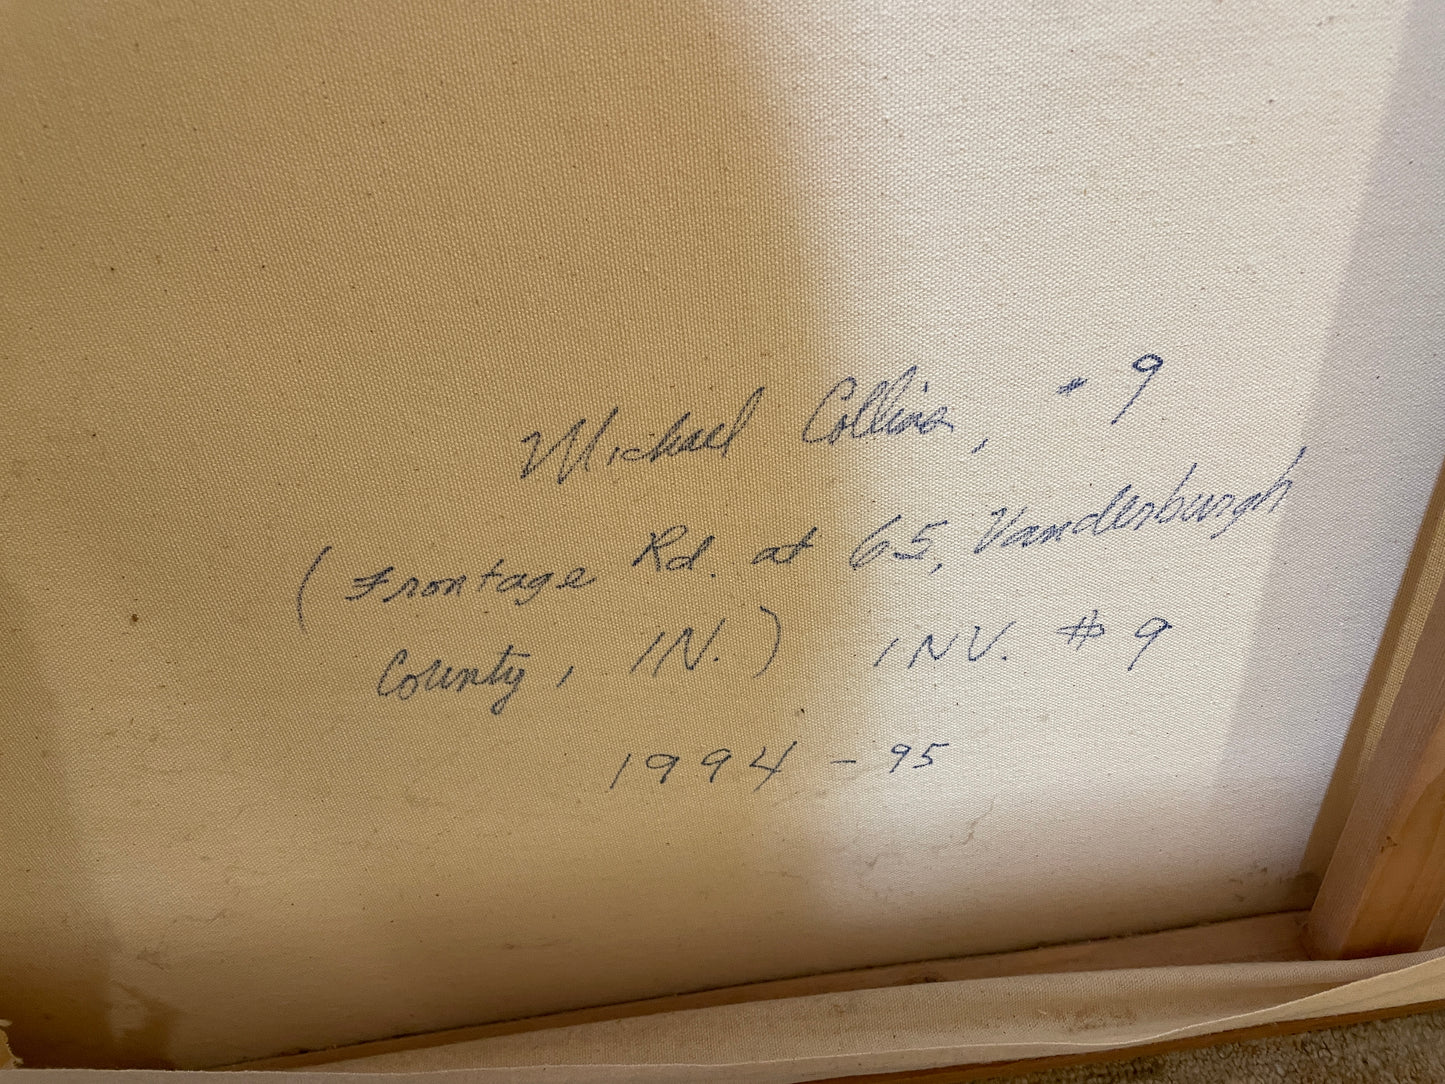 Michael Collins, #9
(Frontage Rd. at 65, Vanderburgh
County, IN.) INV. #9
1994 - 95